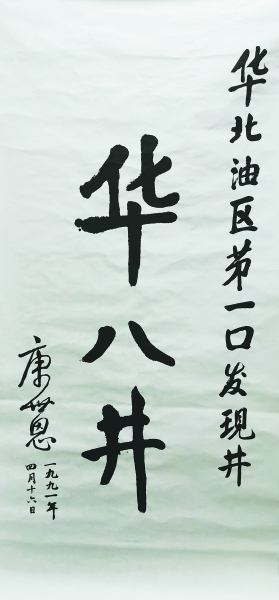 华北油区第一口发现井
华八井
康世恩
一九九一年
四月十六日